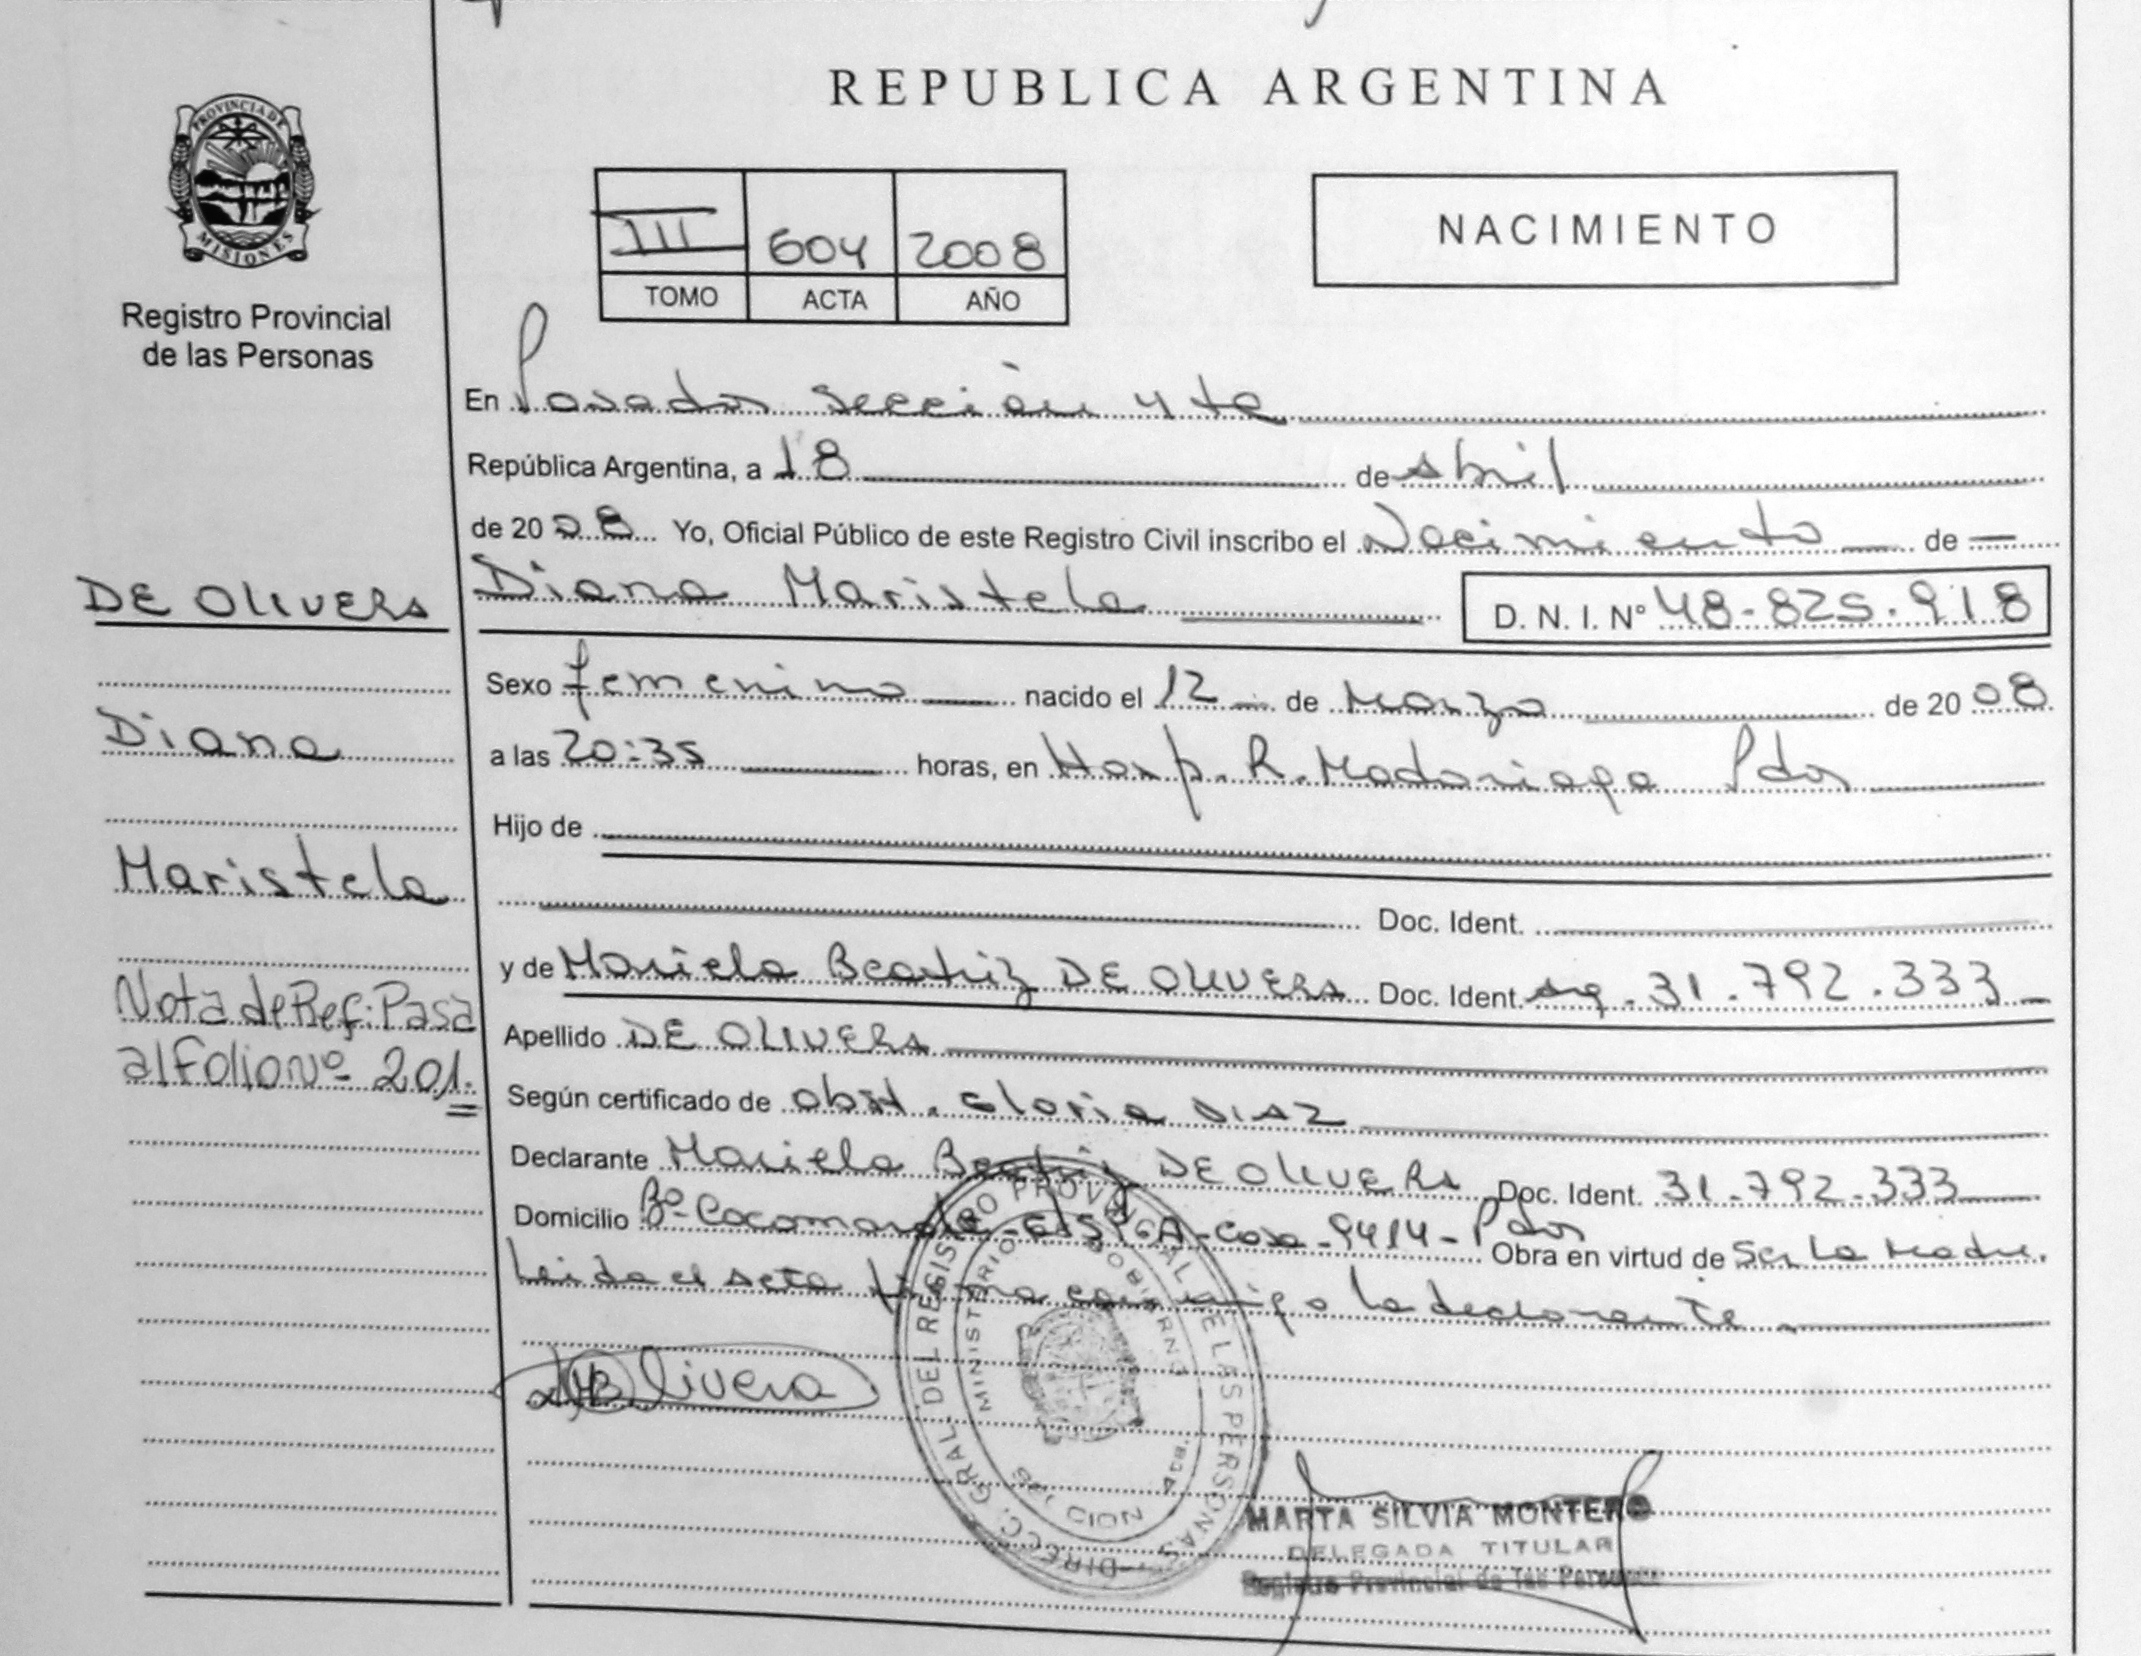 REPUBLICA ARGENTINA
PROVINCIA DE MISIONES
Registro Provincial
de las Personas
III 604 2008
TOMO ACTA AÑO
NACIMIENTO
En Posadas sección 4ta
República Argentina, a 18 de abril
de 2008 Yo, Oficial Público de este Registro Civil inscribo el Nacimiento de
Diana Maristela D. N. I. Nº 48-825.918
Sexo femenino nacido el 12 de Marzo de 2008
a las 20:35 horas, en Hosp. R. Madariaga Pdas
Hijo de
Doc. Ident.
y de Mariela Beatriz DE OLIVERA Doc. Ident. arg. 31.792.333
Apellido DE OLIVERA
Según certificado de obst. Gloria DIAZ
Declarante Mariela Beatriz DE OLIVERA Doc. Ident. 31.792.333
Domicilio Bº Cocomarola -Casa-9414- Pdas Obra en virtud de Ser La Madre.
Leida el acta firma conmigo la declarante
DE OLIVERA
Diana
Maristela
Nota de Ref: Pasa
al Folio Nº 201.
Olivera
DIRECC. GRAL. DEL REGISTRO PROVINCIAL DE LAS PERSONAS
MINISTERIO GOBIERNO
MARTA SILVIA MONTERO
DELEGADA TITULAR
Registro Provincial de las Personas